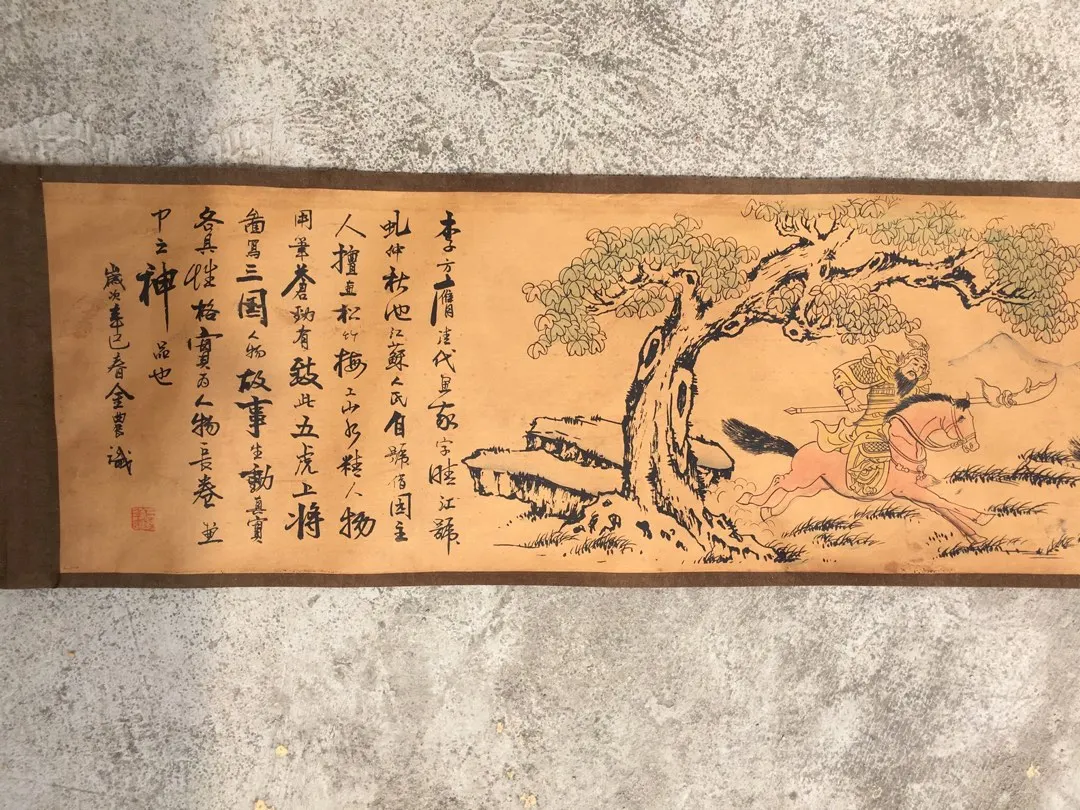 李方膺清代畫家字晴江號
虬仲秋池江蘇人氏自號借园主
人擅画松竹梅工山水精人物
用筆蒼勁有致此五虎上將
啚寫三国人物故事生動真實
各具性格實為人物長卷畫
中之神品也
歲次辛巳春金農識